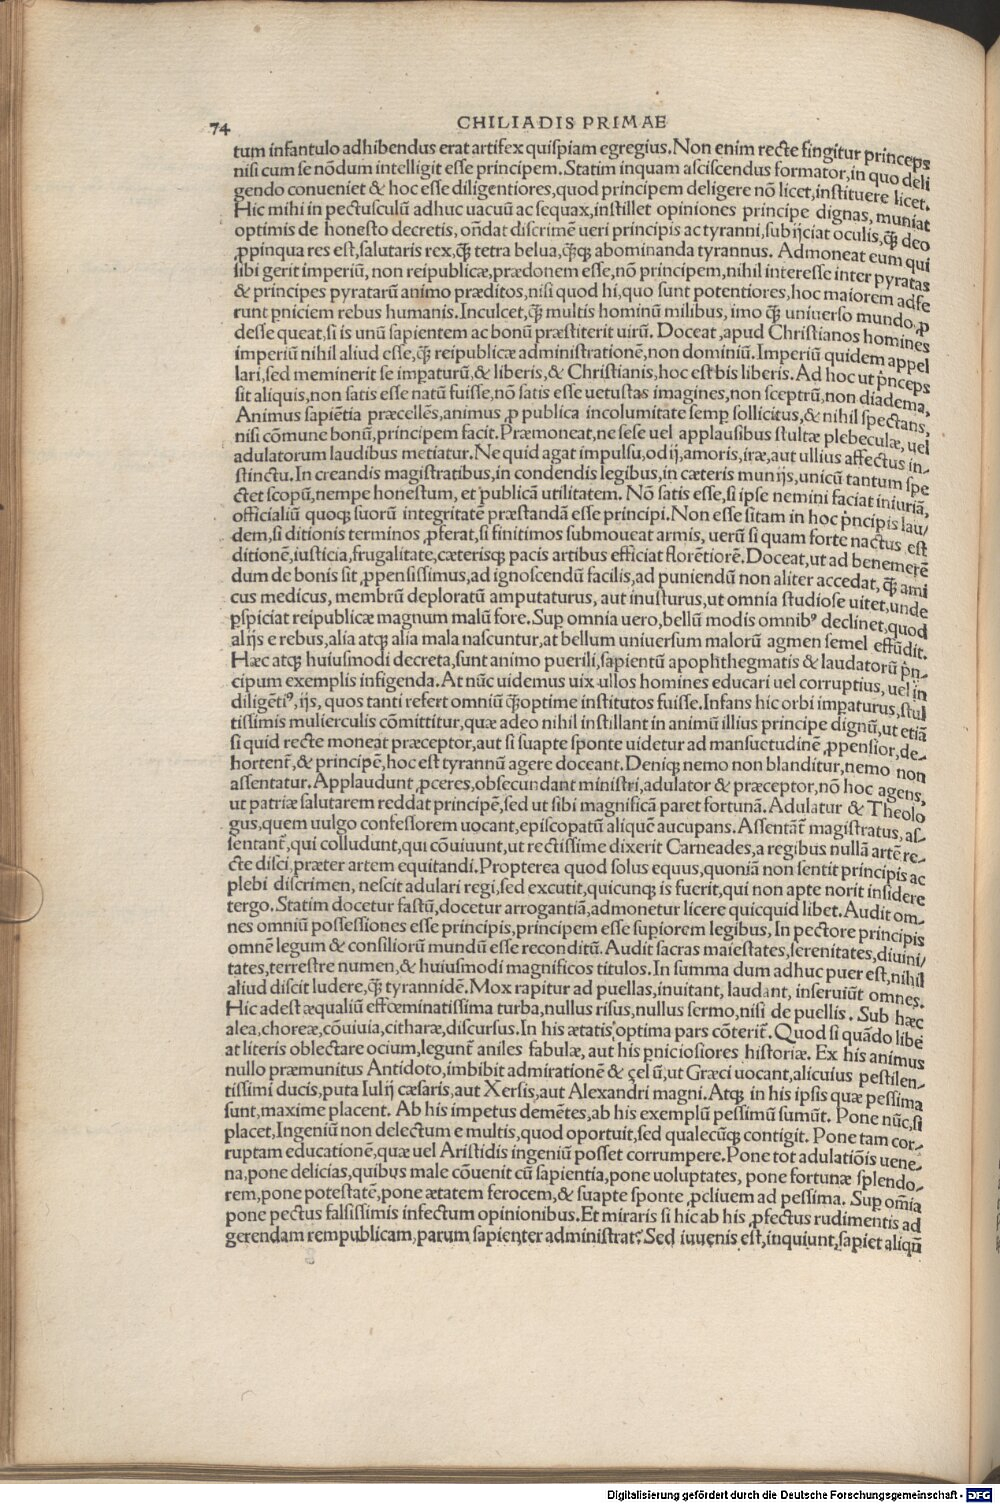 74
CHILIADIS PRIMAE
tum infantulo adhibendus erat artifex quispiam egregius. Non enim recte fingitur princeps
nisi cum se nōdum intelligit esse principem. Statim inquam asciscendus formator, in quo deli
gendo conueniet & hoc esse diligentiores, quod principem deligere nō licet, instituere licet.
Hic mihi in pectusculū adhuc uacuū ac sequax, instillet opiniones principe dignas, muniat
optimis de honesto decretis, oñdat discrimē ueri principis ac tyranni, subijciat oculis, q̄ꝫ deo
ꝓpinqua res est, salutaris rex, q̄ꝫ tetra belua, q̄ꝫqꝫ abominanda tyrannus. Admoneat eum qui
sibi gerit imperiū, non reipublicæ, prædonem esse, nō principem, nihil interesse inter pyratas
& principes pyratarū animo præditos, nisi quod hi, quo sunt potentiores, hoc maiorem adfe
runt ꝑniciem rebus humanis. Inculcet, q̄ꝫ multis hominū milibus, imo q̄ꝫ uniuerso mundo, ꝓ
desse queat, si is unū sapientem ac bonū præstiterit uirū. Doceat, apud Christianos homines
imperiū nihil aliud esse, q̄ꝫ reipublicæ administrationē, non dominiū. Imperiū quidem appel
lari, sed meminerit se imꝑaturū, & liberis, & Christianis, hoc est bis liberis. Ad hoc ut p̄nceps
sit aliquis, non satis esse natū fuisse, nō satis esse uetustas imagines, non sceptrū, non diadema,
Animus sapiētia præcellēs, animus ꝓ publica incolumitate semꝑ sollicitus, & nihil spectans,
nisi cōmune bonū, principem facit. Præmoneat, ne sese uel applausibus stultæ plebeculæ, uel
adulatorum laudibus metiatur. Ne quid agat impulsu, odij, amoris, iræ, aut ullius affectus in-
stinctu. In creandis magistratibus, in condendis legibus, in cæteris munijs, unicū tantum spe
ctet scopū, nempe honestum, et publicā utilitatem. Nō satis esse, si ipse nemini faciat iniuriā,
officialiū quoqꝫ suorū integritatē præstandā esse principi. Non esse sitam in hoc p̄ncipis lau/
dem, si ditionis terminos ꝓferat, si finitimos submoueat armis, uerū si quam forte nactus est
ditionē, iusticia, frugalitate, cæterisqꝫ pacis artibus efficiat florētiorē. Doceat, ut ad benemerē
dum de bonis sit ꝓpensissimus, ad ignoscendū facilis, ad puniendū non aliter accedat, q̄ꝫ ami
cus medicus, membrū deploratū amputaturus, aut inusturus, ut omnia studiose uitet, unde
ꝑspiciat reipublicæ magnum malū fore. Suꝑ omnia uero, bellū modis omnibꝰ declinet, quod
alijs e rebus, alia atqꝫ alia mala nascuntur, at bellum uniuersum malorū agmen semel effūdit.
Hæc atqꝫ huiusmodi decreta, sunt animo puerili, sapientū apophthegmatis & laudatorū p̄n-
cipum exemplis infigenda. At nūc uidemus uix ullos homines educari uel corruptius, uel in
diligētiꝰ, ijs, quos tanti refert omniū q̄ꝫoptime institutos fuisse. Infans hic orbi imꝑaturus, stul
tissimis mulierculis cōmittitur, quæ adeo nihil instillant in animū illius principe dignū, ut etiā
si quid recte moneat præceptor, aut si suapte sponte uidetur ad mansuetudinē ꝓpensior, de-
hortent̄, & principē, hoc est tyrannū agere doceant. Deniqꝫ nemo non blanditur, nemo non
assentatur. Applaudunt ꝓceres, obsecundant ministri, adulator & præceptor, nō hoc agens,
ut patriæ salutarem reddat principē, sed ut sibi magnificā paret fortunā. Adulatur & Theolo
gus, quem uulgo confessorem uocant, episcopatū aliquē aucupans. Assentāt̄ magistratus, as-
sentant̄, qui colludunt, qui cōuiuunt, ut rectissime dixerit Carneades, a regibus nullā artē re-
cte disci, præter artem equitandi. Propterea quod solus equus, quoniā non sentit principis ac
plebi discrimen, nescit adulari regi, sed excutit, quicunqꝫ is fuerit, qui non apte norit insidere
tergo. Statim docetur fastū, docetur arrogantiā, admonetur licere quicquid libet. Audit om-
nes omniū possessiones esse principis, principem esse suꝑiorem legibus, In pectore principis
omnē legum & consiliorū mundū esse reconditū. Audit sacras maiestates, serenitates, diuini/
tates, terrestre numen, & huiusmodi magnificos titulos. In summa dum adhuc puer est, nihil
aliud discit ludere, q̄ꝫ tyrannidē. Mox rapitur ad puellas, inuitant, laudant, inseruiūt omnes.
Hic adest æqualiū effœminatissima turba, nullus risus, nullus sermo, nisi de puellis. Sub hæc
alea, choreæ, cōuiuia, citharæ, discursus. In his ætatis optima pars cōterit̄. Quod si quādo libe
at literis oblectare ocium, legunt̄ aniles fabulæ, aut his ꝑniciosiores historiæ. Ex his animus
nullo præmunitus Antidoto, imbibit admirationē & çelū, ut Græci uocant, alicuius pestilen-
tissimi ducis, puta Iulij cæsaris, aut Xersis, aut Alexandri magni. Atqꝫ in his ipsis quæ pessima
sunt, maxime placent. Ab his impetus demētes, ab his exemplū pessimū sumūt. Pone nūc, si
placet, Ingeniū non delectum e multis, quod oportuit, sed qualecūqꝫ contigit. Pone tam cor-
ruptam educationē, quæ uel Aristidis ingeniū posset corrumpere. Pone tot adulatiōis uene-
na, pone delicias, quibus male cōuenit cū sapientia, pone uoluptates, pone fortunæ splendo-
rem, pone potestatē, pone ætatem ferocem, & suapte sponte ꝓcliuem ad pessima. Suꝑ om̄ia
pone pectus falsissimis infectum opinionibus. Et miraris si hic ab his ꝓfectus rudimentis ad
gerendam rempublicam, parum sapienter administrat? Sed iuuenis est, inquiunt, sapiet aliqū
Digitalisierung gefördert durch die Deutsche Forschungsgemeinschaft - DFG